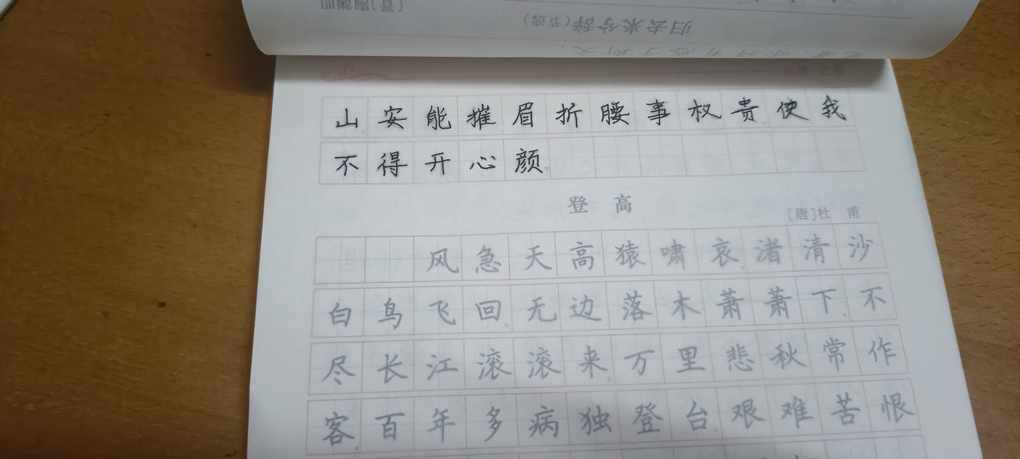 归去来兮辞(节选)
山安能摧眉折腰事权贵使我
不得开心颜
登高
[唐]杜甫
风急天高猿啸哀渚清沙
白鸟飞回无边落木萧萧下不
尽长江滚滚来万里悲秋常作
客百年多病独登台艰难苦恨